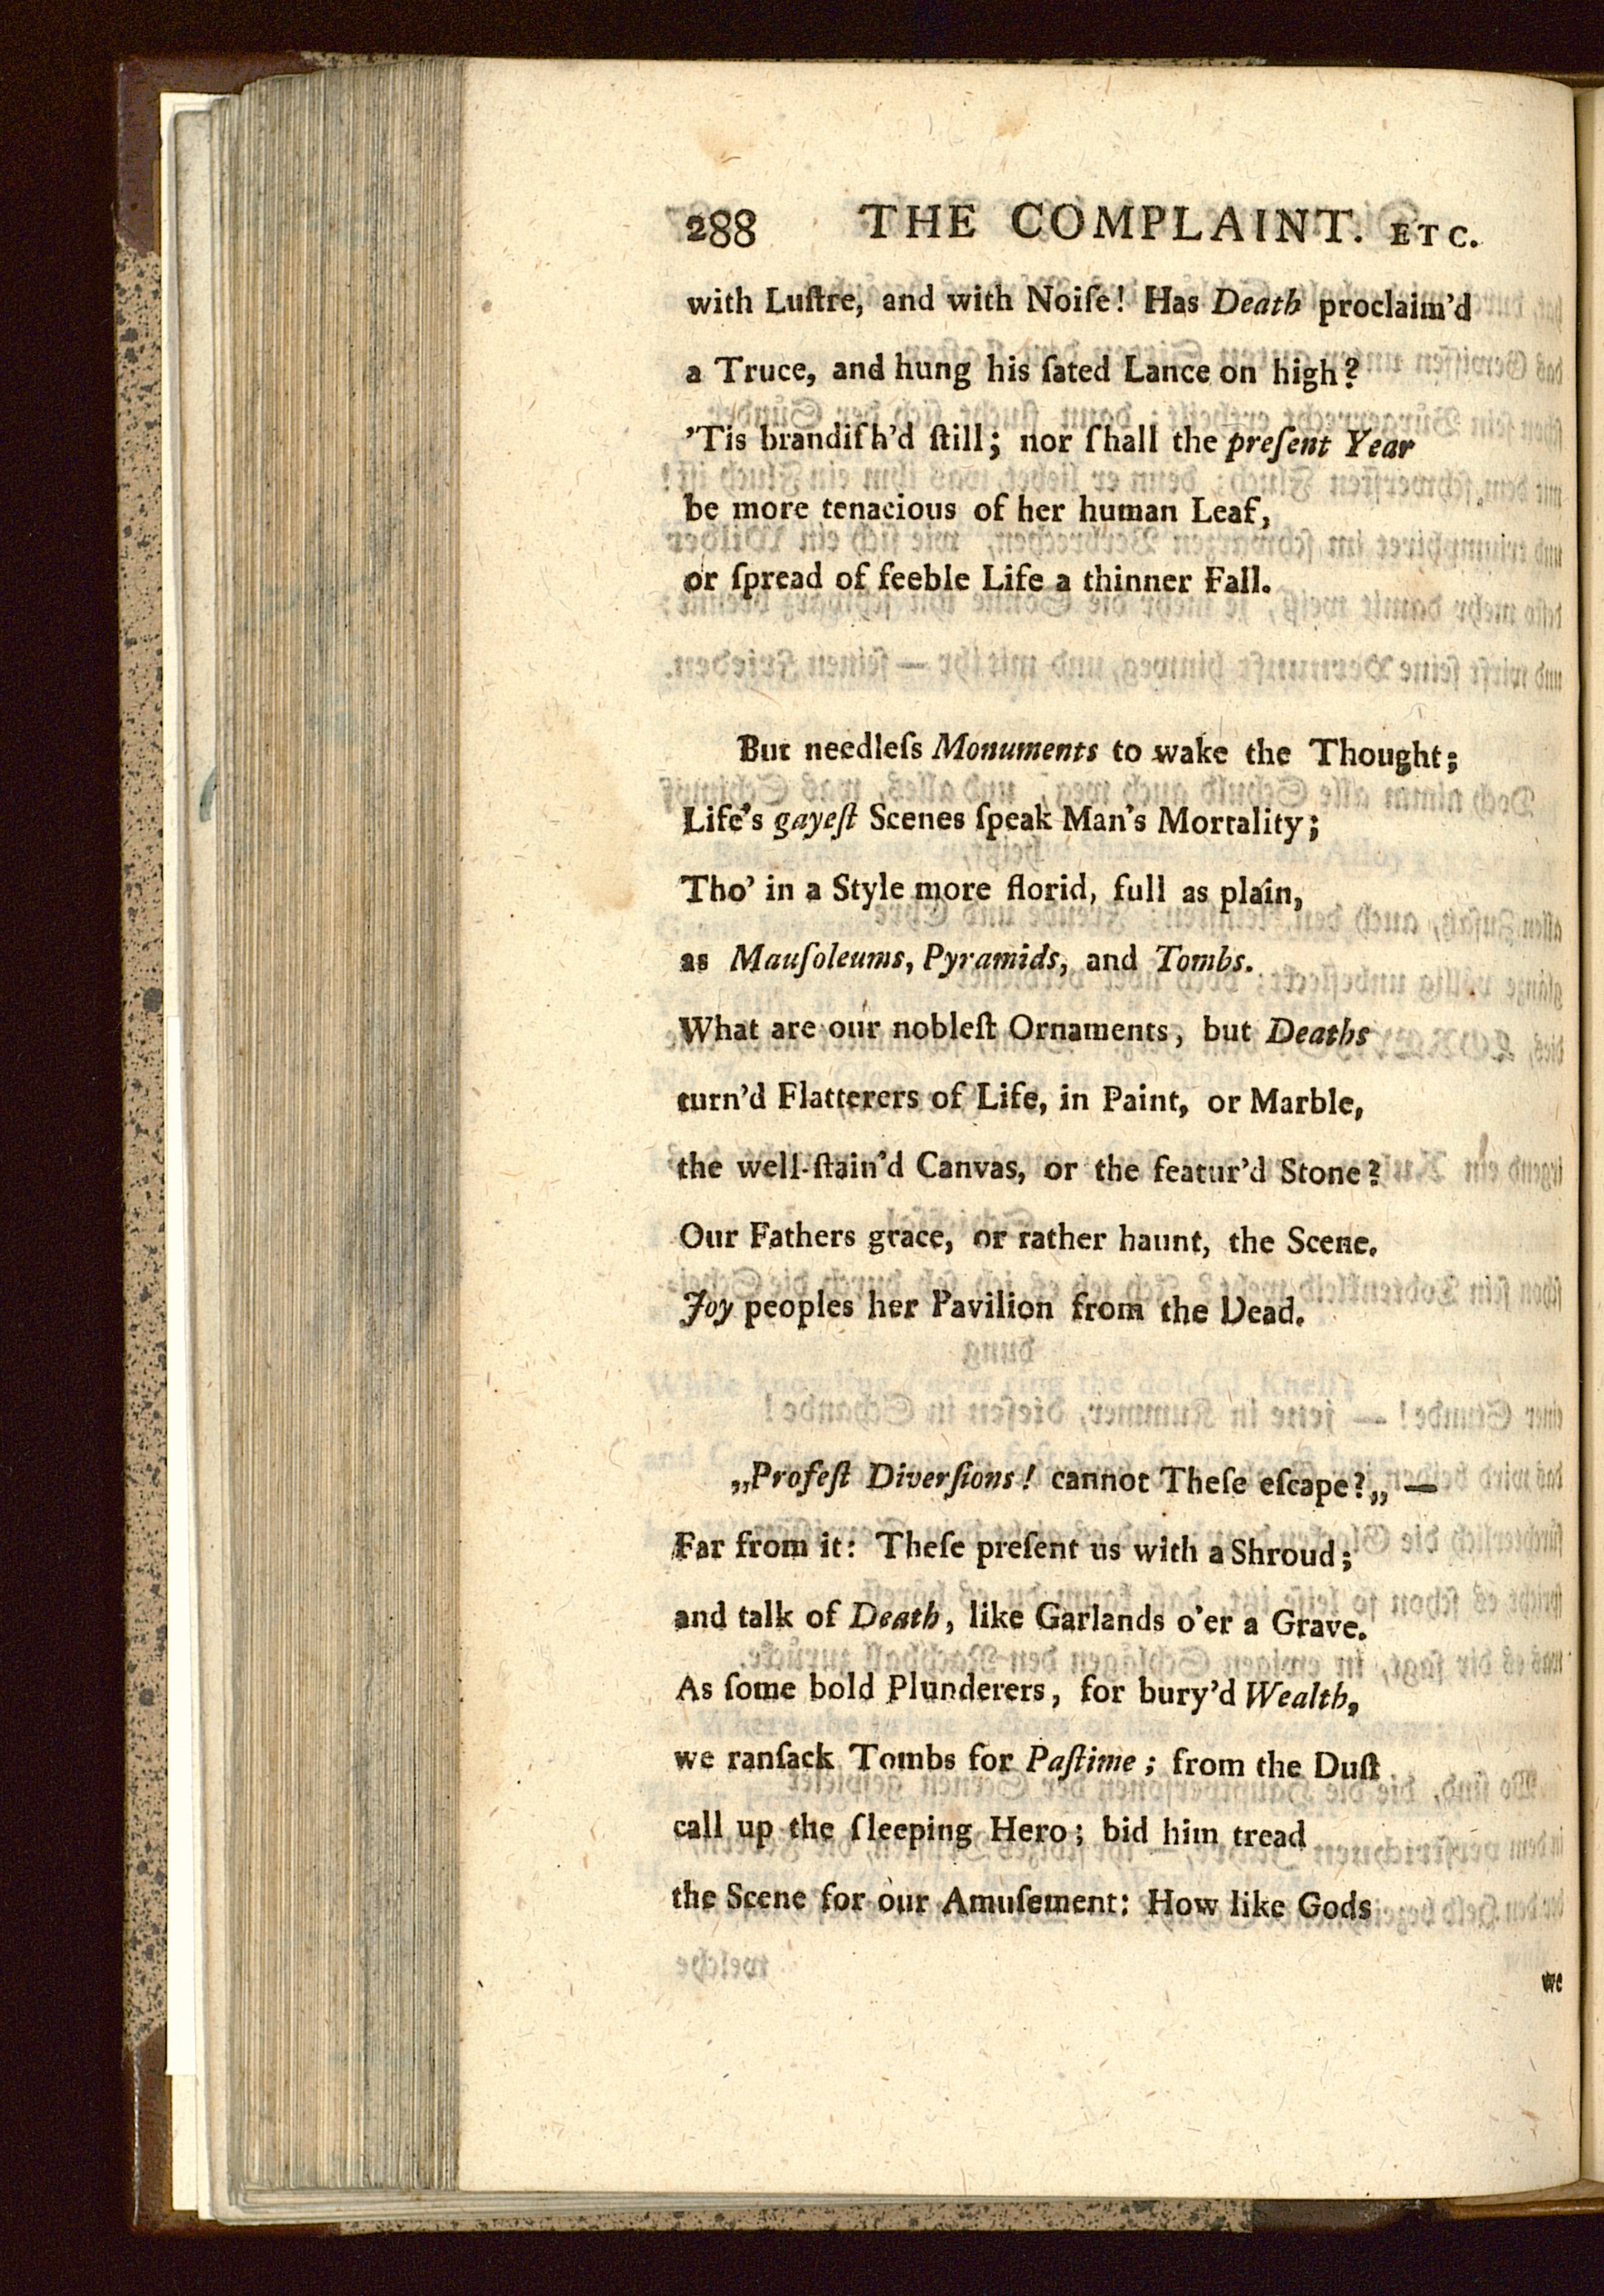 288 THE COMPLAINT. ETC.
with Luſtre, and with Noiſe! Has Death proclaim'd
a Truce, and hung his ſated Lance on high?
'Tis brandiſh'd ſtill; nor ſhall the preſent Year
be more tenacious of her human Leaf,
or ſpread of feeble Life a thinner Fall.
But needleſs Monuments to wake the Thought;
Life's gayeſt Scenes ſpeak Man's Mortality;
Tho' in a Style more florid, full as plain,
as Mauſoleums, Pyramids, and Tombs.
What are our nobleſt Ornaments, but Deaths
turn'd Flatterers of Life, in Paint, or Marble,
the well-ſtain'd Canvas, or the featur'd Stone?
Our Fathers grace, or rather haunt, the Scene.
Joy peoples her Pavilion from the Dead.
„Profeſt Diverſions! cannot Theſe eſcape?„ —
Far from it: Theſe preſent us with a Shroud;
and talk of Death, like Garlands o'er a Grave.
As ſome bold Plunderers, for bury'd Wealth,
we ranſack Tombs for Paſtime; from the Duſt
call up the ſleeping Hero; bid him tread
the Scene for our Amuſement: How like Gods
we